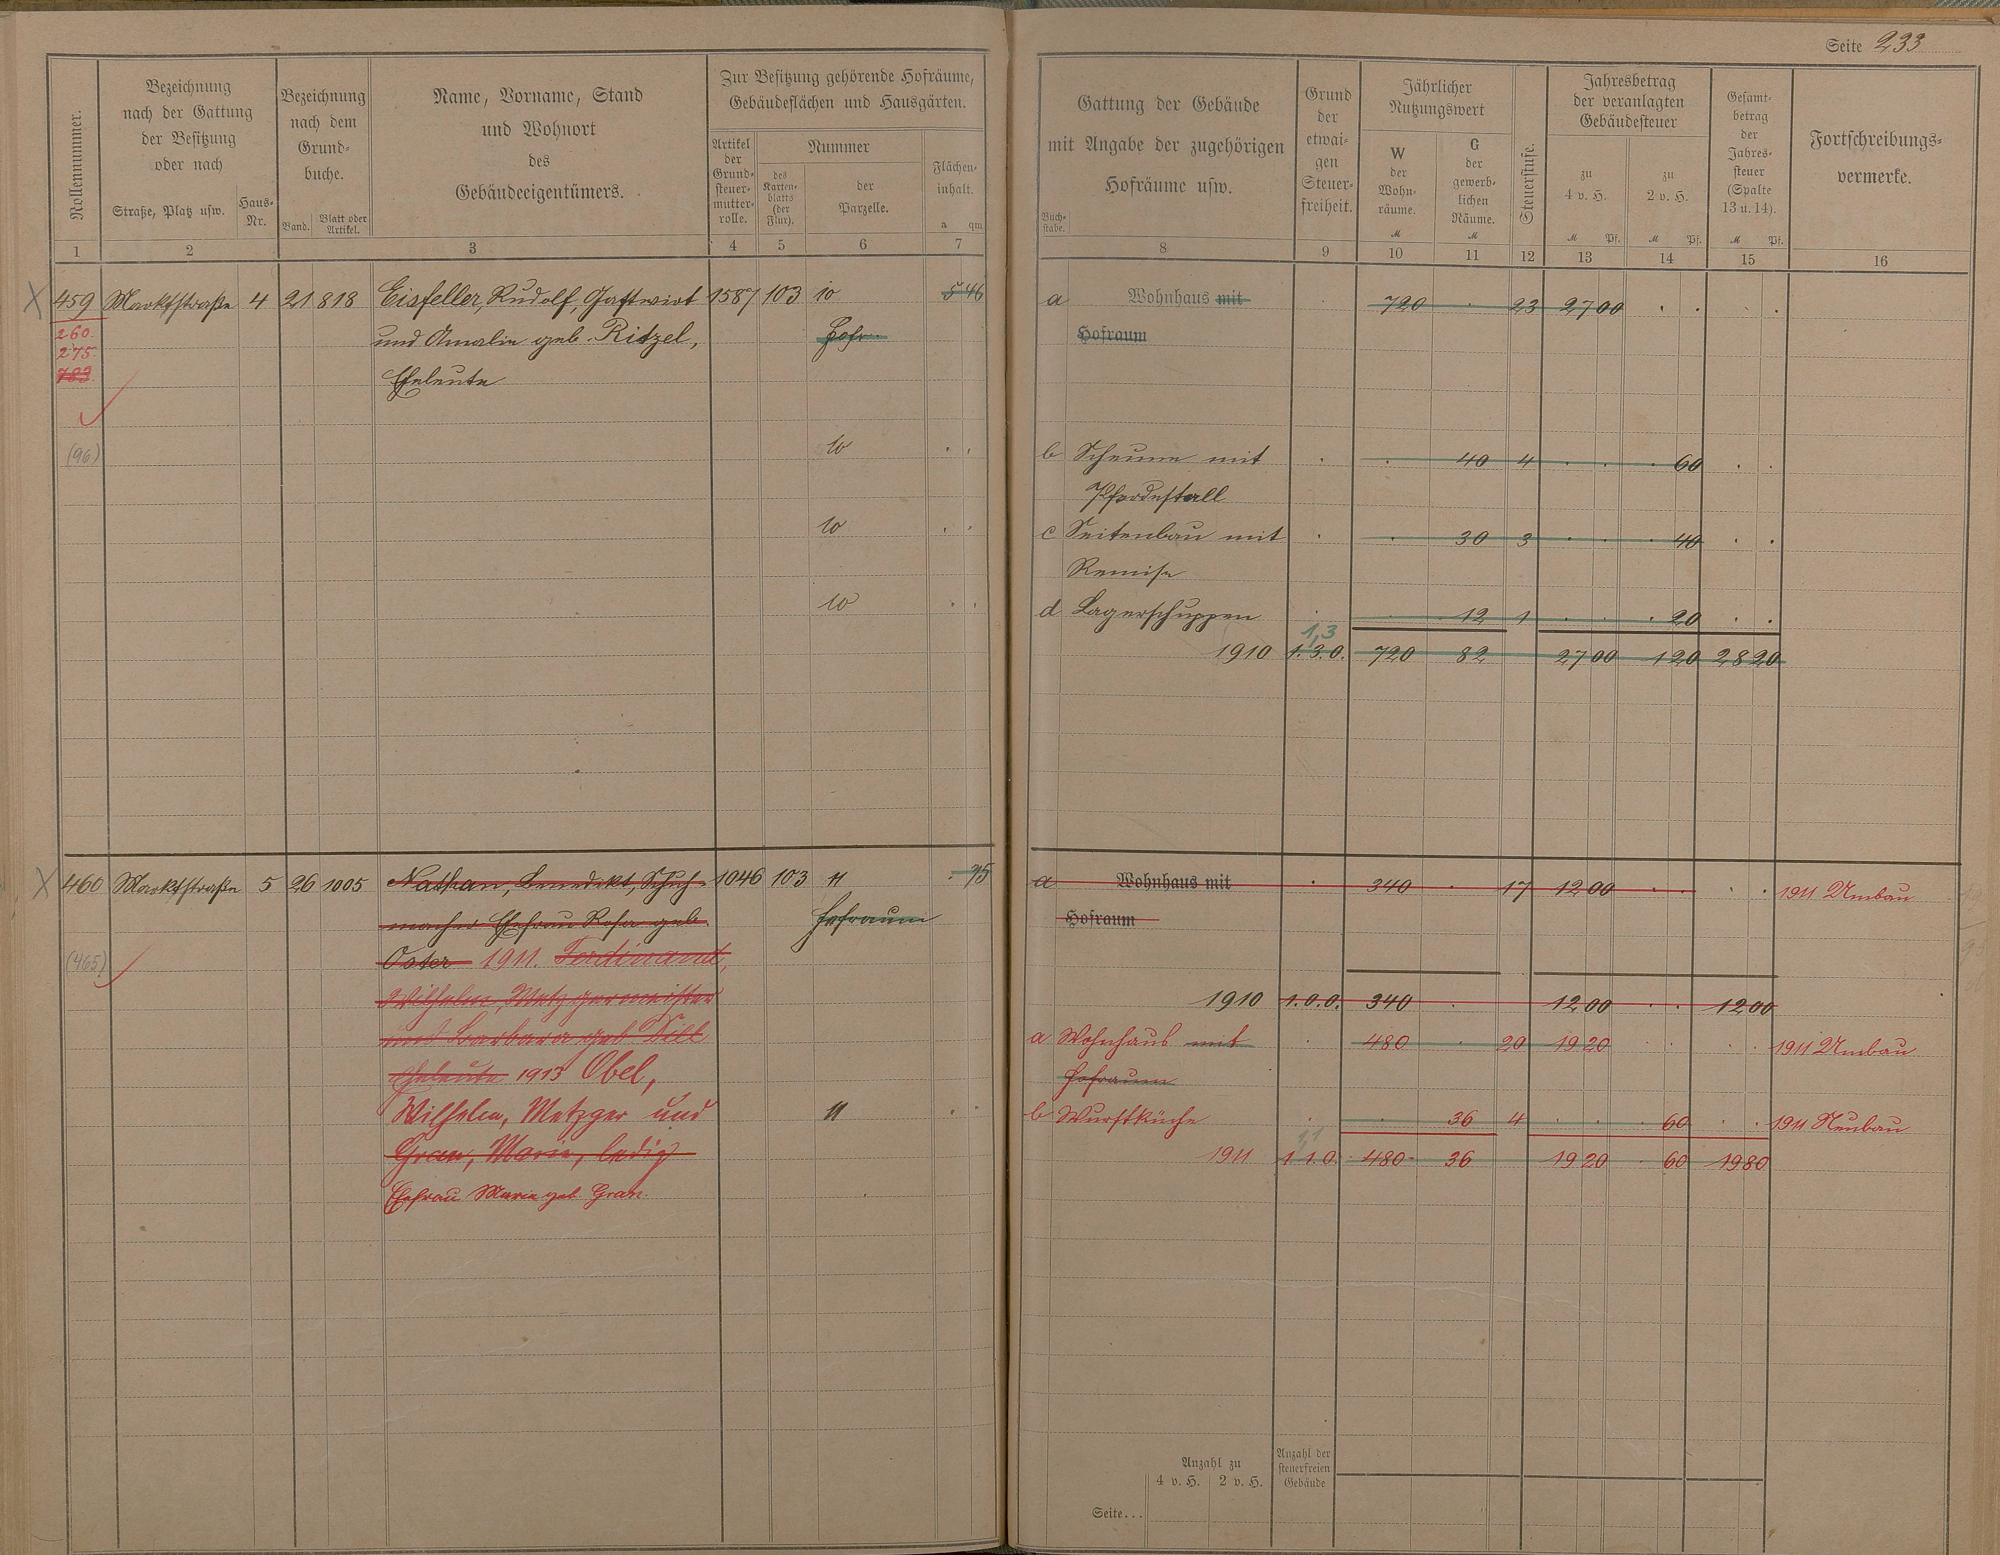 Seite 233
Rollennummer.
Bezeichnung
nach der Gattung
der Besitzung
oder nach
Straße, Platz usw.
Haus-
Nr.
Bezeichnung
nach dem
Grund-
buche.
Band.
Blatt oder
Artikel.
Name, Vorname, Stand
und Wohnort
des
Gebäudeeigentümers.
Zur Besitzung gehörende Hofräume,
Gebäudeflächen und Hausgärten.
Artikel
der
Grund-
steuer-
mutter-
rolle.
Nummer
des
Karten-
blatts
(der
Flur).
der
Parzelle.
Flächen-
inhalt.
a qm
1 2 3 4 5 6 7
Gattung der Gebäude
mit Angabe der zugehörigen
Hofräume usw.
Buch-
stabe.
Grund
der
etwai-
gen
Steuer-
freiheit.
Jährlicher
Nutzungswert
W
der
Wohn-
räume.
M
G
der
gewerb-
lichen
Räume.
M
Steuerstufe.
Jahresbetrag
der veranlagten
Gebäudesteuer
zu
4 v. H.
M Pf.
zu
2 v. H.
M Pf.
Gesamt-
betrag
der
Jahres-
steuer
(Spalte
13 u. 14).
M Pf.
Fortschreibungs-
vermerke.
8 9 10 11 12 13 14 15 16
X 459 Marktstraße 4 21 818 Eisfeller, Rudolf, Gastwirt 1587 103 10 5 46
260.
275.
783.
und Amalie geb. Ritzel, Hofr.
Eheleute
(96)
10
10
10
a Wohnhaus mit 720 23 27 00
Hofraum
b Scheune mit 40 4 60
Pferdestall
c Seitenbau mit 30 3 40
Remise
d Lagerschuppen 12 1 20
1,3
1910 1.3.0. 720 82 27 00 1 20 28 20
X 460 Marktstraße 5 26 1005 Nathan, Benedikt, Schuh- 1046 103 11 95
macher Ehefrau Rosa geb. Hofraum
(465)
Oster 1911. Ferdinand,
Wilhelm, Metzgermeister
und Barbara geb. Dill
Eheleute 1913 Obel,
Wilhelm, Metzger und 11
Gran, Marie, ledig
Ehefrau Marie geb. Gran.
a Wohnhaus mit 340 17 12 00 1911 Umbau
Hofraum
1910 1.0.0. 340 12 00 12 00
a Wohnhaus mit 480 20 19 20 1911 Umbau
Hofraum
b Wurstküche 36 4 60 1911 Neubau
1,1
1911 1.1.0. 480 36 19 20 60 19 80
Anzahl zu
4 v. H. 2 v. H.
Anzahl der
steuerfreien
Gebäude
Seite...